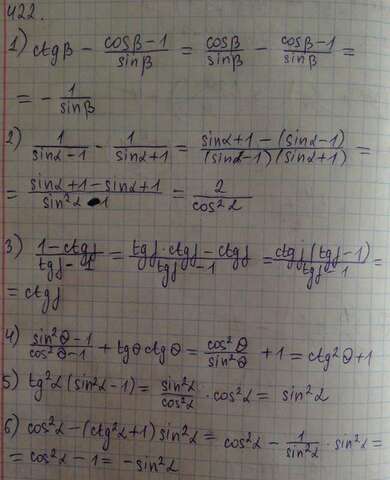 422.
1) ctgβ - (cosβ-1)/sinβ = cosβ/sinβ - (cosβ-1)/sinβ =
= - 1/sinβ
2) 1/(sinα-1) - 1/(sinα+1) = (sinα+1-(sinα-1))/((sinα-1)(sinα+1)) =
= (sinα+1-sinα+1)/(sin²α-1) = 2/cos²α
3) (1-ctgγ)/(tgγ-1) = (tgγ·ctgγ-ctgγ)/(tgγ-1) = (ctgγ(tgγ-1))/(tgγ-1) =
= ctgγ
4) (sin²θ-1)/(cos²θ-1) + tgθctgθ = cos²θ/sin²θ + 1 = ctg²θ+1
5) tg²α(sin²α-1) = sin²α/cos²α · cos²α = sin²α
6) cos²α-(ctg²α+1)sin²α = cos²α - 1/sin²α · sin²α =
= cos²α-1 = -sin²α